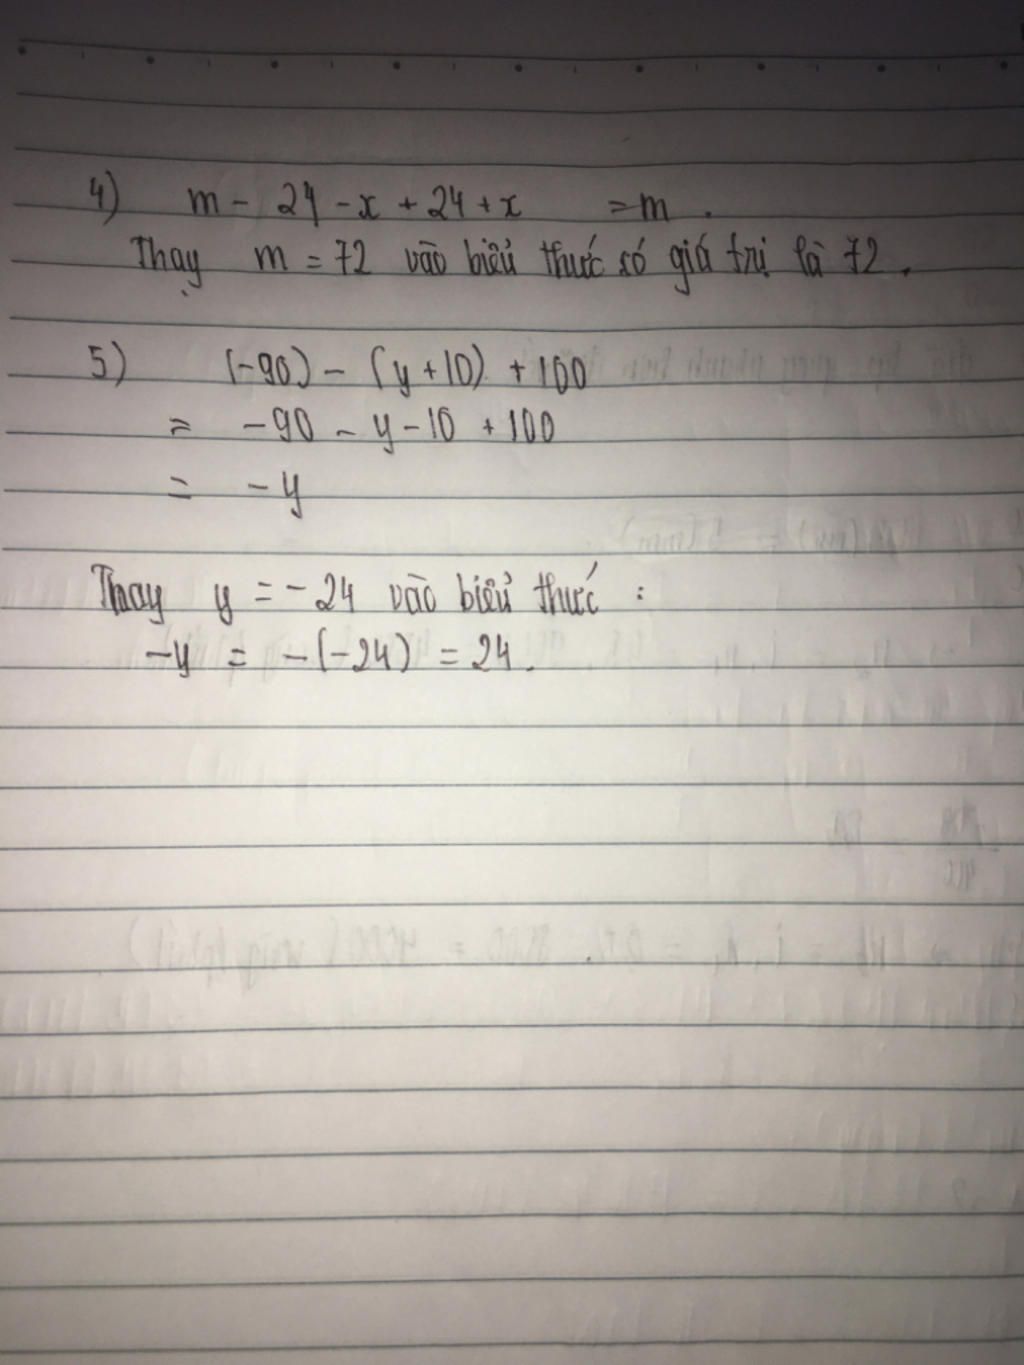 4) m - 24 - x + 24 + x = m.
Thay m = 72 vào biểu thức có giá trị là 72.
5) (-90) - (y + 10) + 100
= -90 - y - 10 + 100
= -y
Thay y = -24 vào biểu thức :
-y = -(-24) = 24.